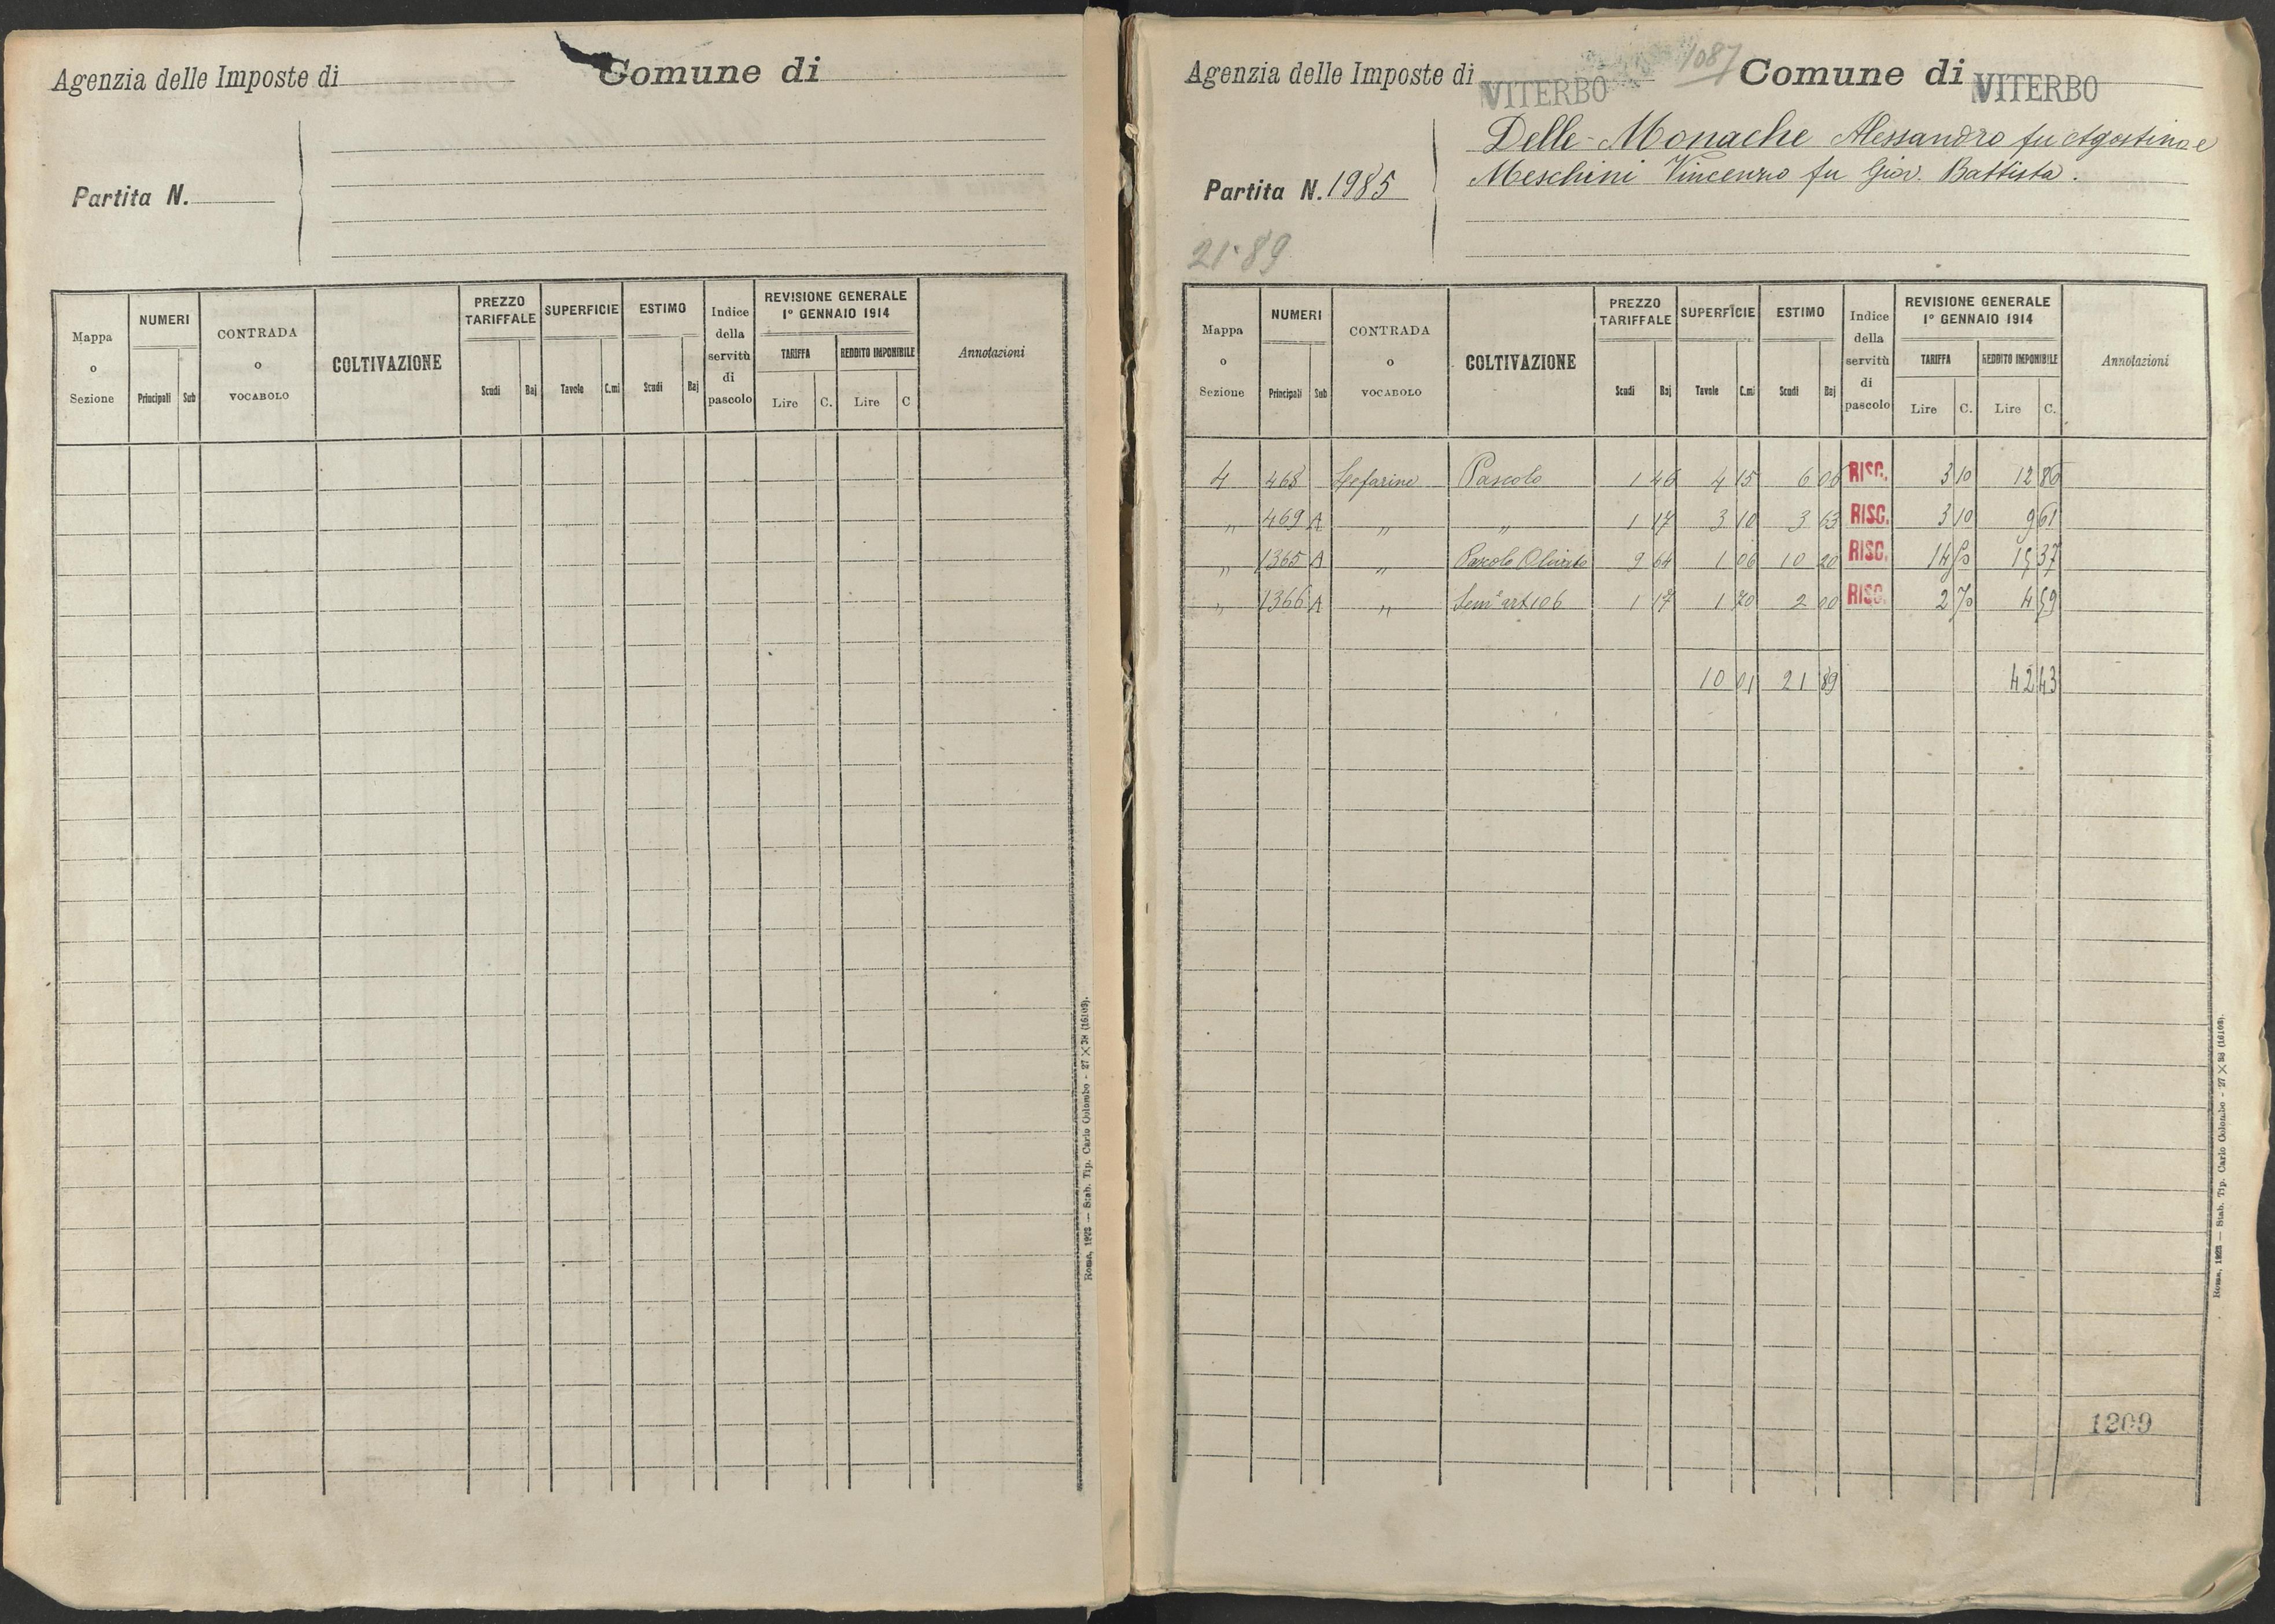 Agenzia delle Imposte di
Comune di
Partita N.
Mappa o Sezione
NUMERI
Principali Sub
CONTRADA o VOCABOLO
COLTIVAZIONE
PREZZO TARIFFALE
Scudi Baj
SUPERFICIE
Tavole C.mi
ESTIMO
Scudi Baj
Indice della servitù di pascolo
REVISIONE GENERALE
1° GENNAIO 1914
TARIFFA REDDITO IMPONIBILE
Lire C. Lire C
Annotazioni
Roma, 1923 — Stab. Tip. Carlo Colombo - 27 × 38 (16103).
1087
Agenzia delle Imposte di VITERBO Comune di VITERBO
Delle-Monache Alessandro fu Agostino e
Meschini Vincenzo fu Giov. Battista.
Partita N. 1985
21.89
Mappa o Sezione
NUMERI
Principali Sub
CONTRADA o VOCABOLO
COLTIVAZIONE
PREZZO TARIFFALE
Scudi Baj
SUPERFICIE
Tavole C.mi
ESTIMO
Scudi Baj
Indice della servitù di pascolo
REVISIONE GENERALE
1° GENNAIO 1914
TARIFFA REDDITO IMPONIBILE
Lire C. Lire C.
Annotazioni
4 468 Pascolo 1 46 4 15 6 06 RISC. 3 10 12 86
" 469 A " " 1 17 3 10 3 63 RISC. 3 10 9 61
" 1365 A " Pascolo Olivato 9 64 1 06 10 20 RISC. 14 50 15 37
" 1366 A " Sem° art 106 1 17 1 70 2 00 RISC. 2 70 4 59
10 01 21 89 42 43
1209
Roma, 1923 — Stab. Tip. Carlo Colombo - 27 × 38 (16103).